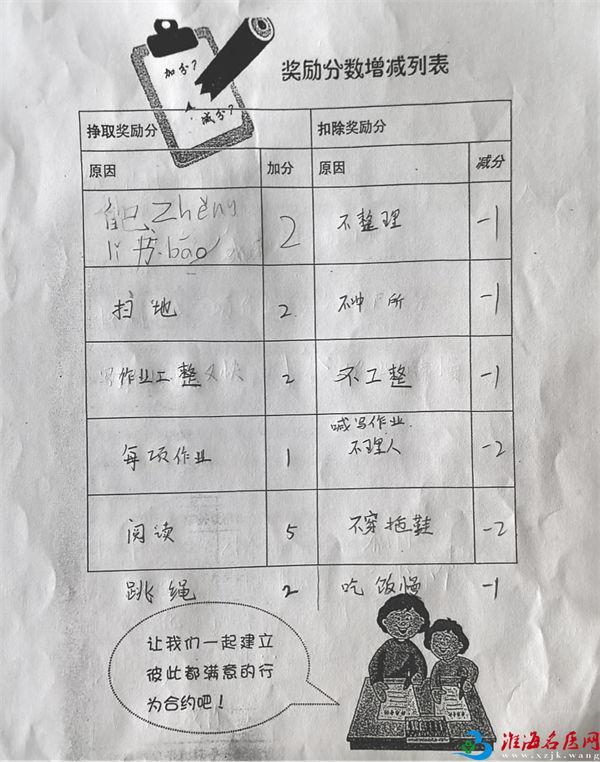 加分?
减分?
奖励分数增减列表
挣取奖励分 扣除奖励分
原因 加分 原因 减分
自己zhěng 2 不整理 -1
lǐ书bāo
扫地 2 不冲厕所 -1
写作业工整又快 2 不工整 -1
每项作业 1 喊写作业 -2
不理人
阅读 5 不穿拖鞋 -2
跳绳 2 吃饭慢 -1
让我们一起建立
彼此都满意的行
为合约吧!
淮海名医网
www.xzjk.wang